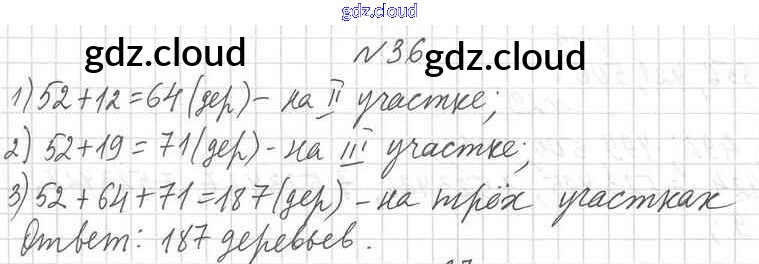 gdz.cloud
gdz.cloud №36 gdz.cloud
1) 52+12=64(дер) - на II участке;
2) 52+19=71(дер) - на III участке;
3) 52+64+71=187(дер) - на трёх участках
Ответ: 187 деревьев.